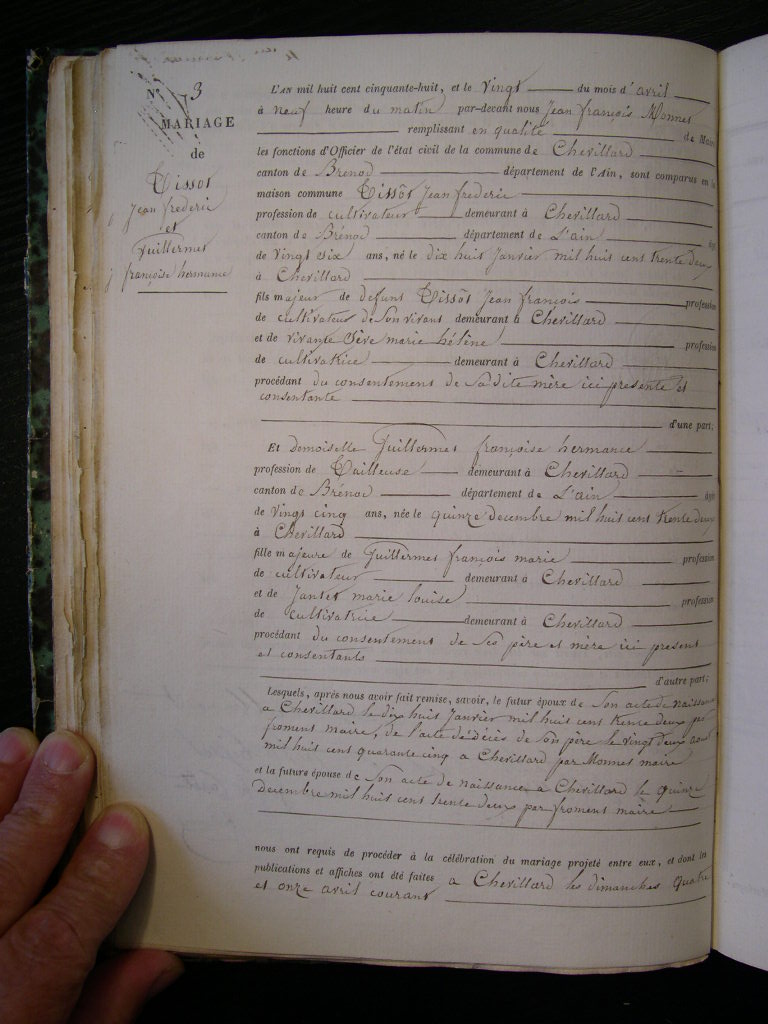 N° 3
MARIAGE
de
Tissot
jean frederic
et
Guillermet
françoise hermance
L'AN mil huit cent cinquante-huit, et le vingt du mois d'avril
à neuf heure du matin par-devant nous Jean françois Monnet
remplissant en qualité de Maire
les fonctions d'Officier de l'état civil de la commune de Chevillard
canton de Brénod département de l'Ain, sont comparus en la
maison commune Tissôt Jean frederic
profession de cultivateur demeurant à Chevillard
canton de Brénod département de L'ain âgé
de vingt six ans, né le dix huit Janvier mil huit cent trente deux
à Chevillard
fils majeur de defunt Tissôt Jean françois profession
de cultivateur de son vivant demeurant à Chevillard
et de vivante Sève marie hélène profession
de cultivatrice demeurant à Chevillard
procédant du consentement de sa dite mère ici presente et
consentante
d'une part;
Et demoiselle Guillermet françoise hermance
profession de Tailleuse demeurant à Chevillard
canton de Brénod département de L'ain âgée
de vingt cinq ans, née le quinze decembre mil huit cent trente deux
à Chevillard
fille majeure de Guillermet françois marie profession
de cultivateur demeurant à Chevillard
et de Jantet marie louise profession
de cultivatrice demeurant à Chevillard
procédant du consentement de ses père et mère ici present
et consentants
d'autre part;
Lesquels, après nous avoir fait remise, savoir, le futur époux de son acte de naissance
a Chevillard le dix huit Janvier mil huit cent trente deux par
froment maire, de l'acte de décès de son père le vingt deux aout
mil huit cent quarante cinq a Chevillard par Monnet maire
et la future épouse de son acte de naissance a Chevillard le quinze
decembre mil huit cent trente deux par froment maire
nous ont requis de procéder à la célébration du mariage projeté entre eux, et dont les
publications et affiches ont été faites a Chevillard les dimanches quatre
et onze avril courant